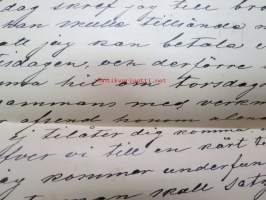 dag skref jag till bro
kan skulle tillända
all jag kan betala
sdagen, och derförre
na hit om torsdag
sammans med verkm
afsend honom alen
Ei tillåter dig komma
ffver vi till en kärt
jag kommer underfun
man skall satz